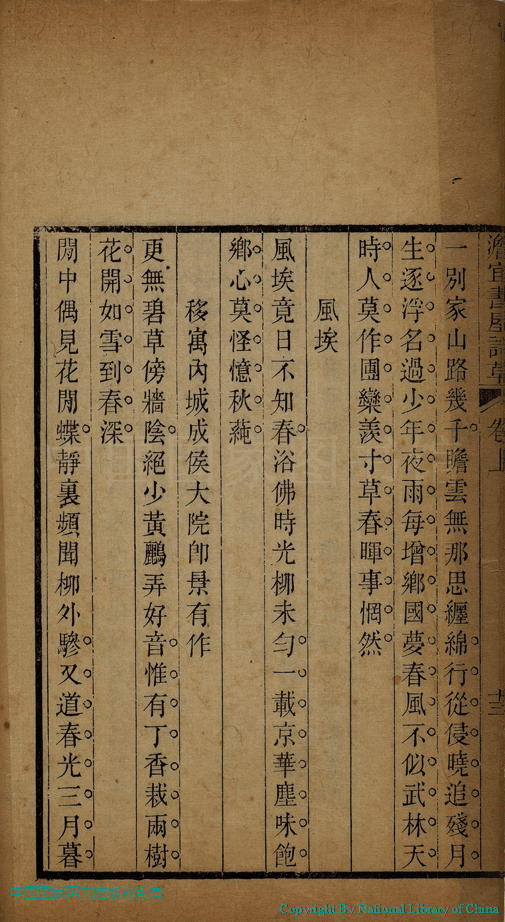 澹宜書屋詩草 卷上 十三
一別家山路幾千瞻雲無那思纏綿行從侵曉追殘月
生逐浮名過少年夜雨每增鄉國夢春風不似武林天
時人莫作團欒羨寸草春暉事惘然
風埃
風埃竟日不知春浴佛時光柳未勻一載京華塵味飽
鄉心莫怪憶秋蒓
移寓內城成侯大院卽景有作
更無碧草傍牆陰絕少黃鸝弄好音惟有丁香栽兩樹
花開如雪到春深
閒中偶見花閒蝶靜裏頻聞柳外驂又道春光三月暮
Copyright By National Library of China